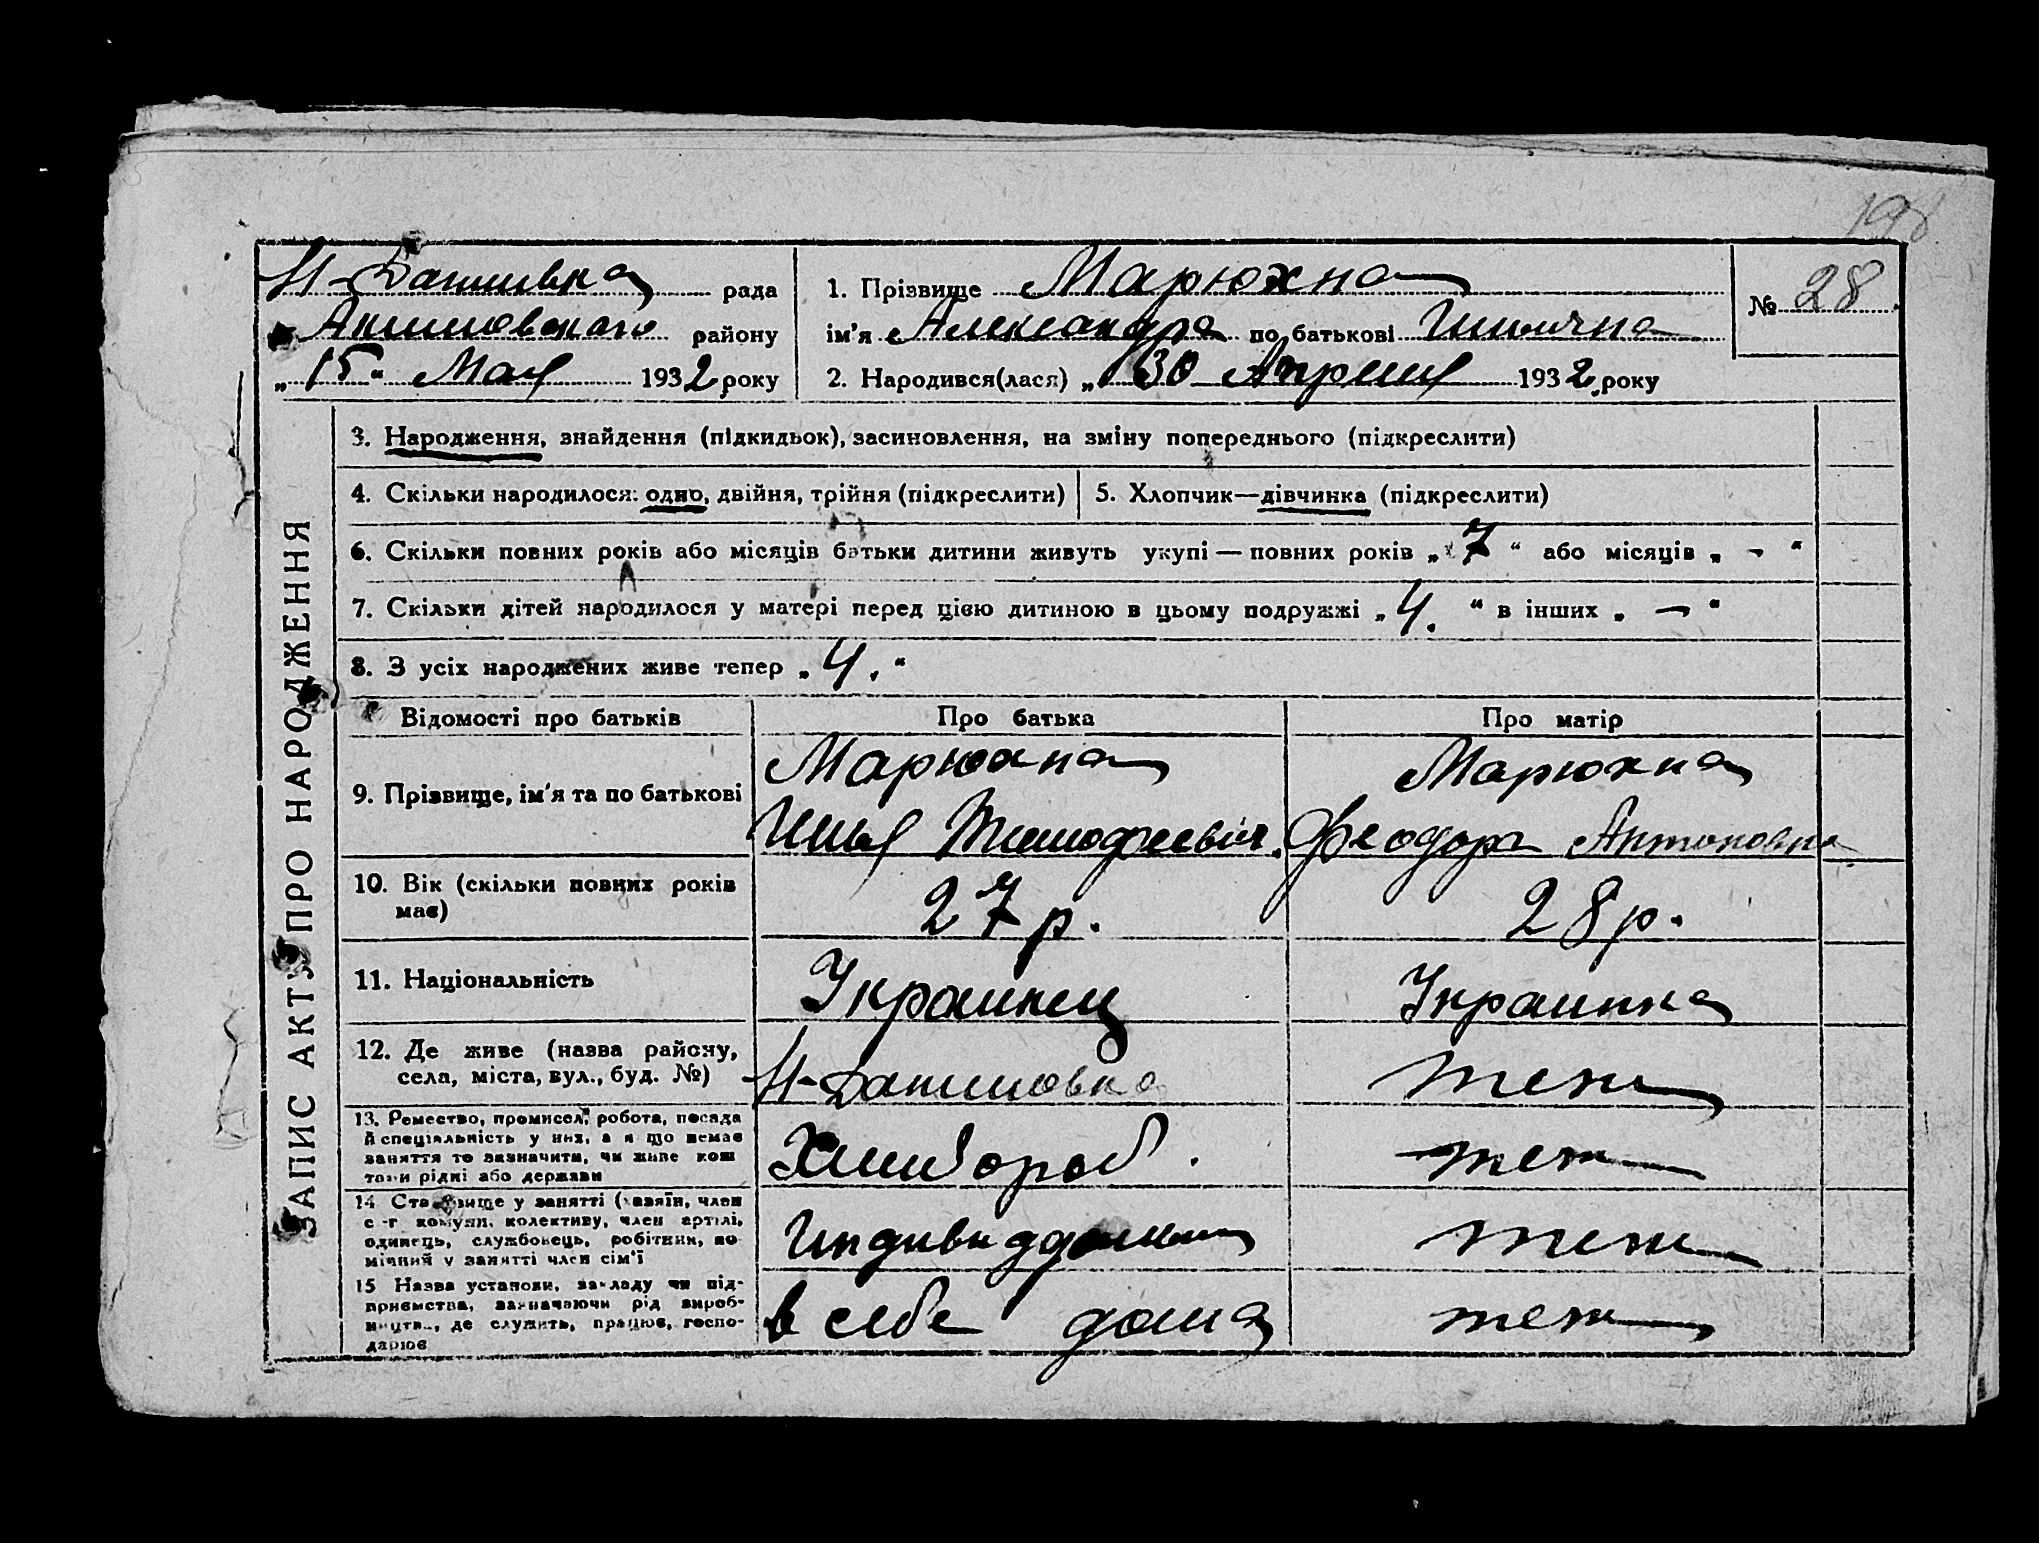 198
Н-Данилівка рада
Акимовского району
„15“ Мая 1932 року
1. Прізвище Марюхна
ім'я Александра по батькові Илинична
2. Народився(лася) „30 Апреля 1932 року
№ 28
ЗАПИС АКТУ ПРО НАРОДЖЕННЯ
3. Народження, знайдення (підкидьок), засиновлення, на зміну попереднього (підкреслити)
4. Скільки народилося: одно, двійня, трійня (підкреслити)
5. Хлопчик—дівчинка (підкреслити)
6. Скільки повних років або місяців батьки дитини живуть укупі — повних років „7“ або місяців „-“
7. Скільки дітей народилося у матері перед цією дитиною в цьому подружжі „4.“ в інших „—“
8. З усіх народжених живе тепер „4.“
Відомості про батьків
Про батька
Про матір
9. Прізвище, ім'я та по батькові
Марюхна
Илья Тимофеевич.
Марюхна
Феодора Антоновна
10. Вік (скільки повних років
має)
27 р.
28 р.
11. Національність
Украинец
Украинка
12. Де живе (назва району,
села, міста, вул., буд. №)
Н-Даниловка
теж
13. Ремество, промисел, робота, посада
й спеціяльність у них, а якщо немає
заняття то зазначити, чи живе кош
тами рідні або держави
Хлибороб.
теж
14 Становище у занятті (хазяїн, член
с-г комуни, колективу, член артілі,
одинець, службовець, робітник, по
мічний у занятті член сім'ї
теж
15 Назва установи, закладу чи під-
приємства, зазначаючи рід вироб-
ництва, де служить, працює, госпо-
дарює
в себе дома
теж